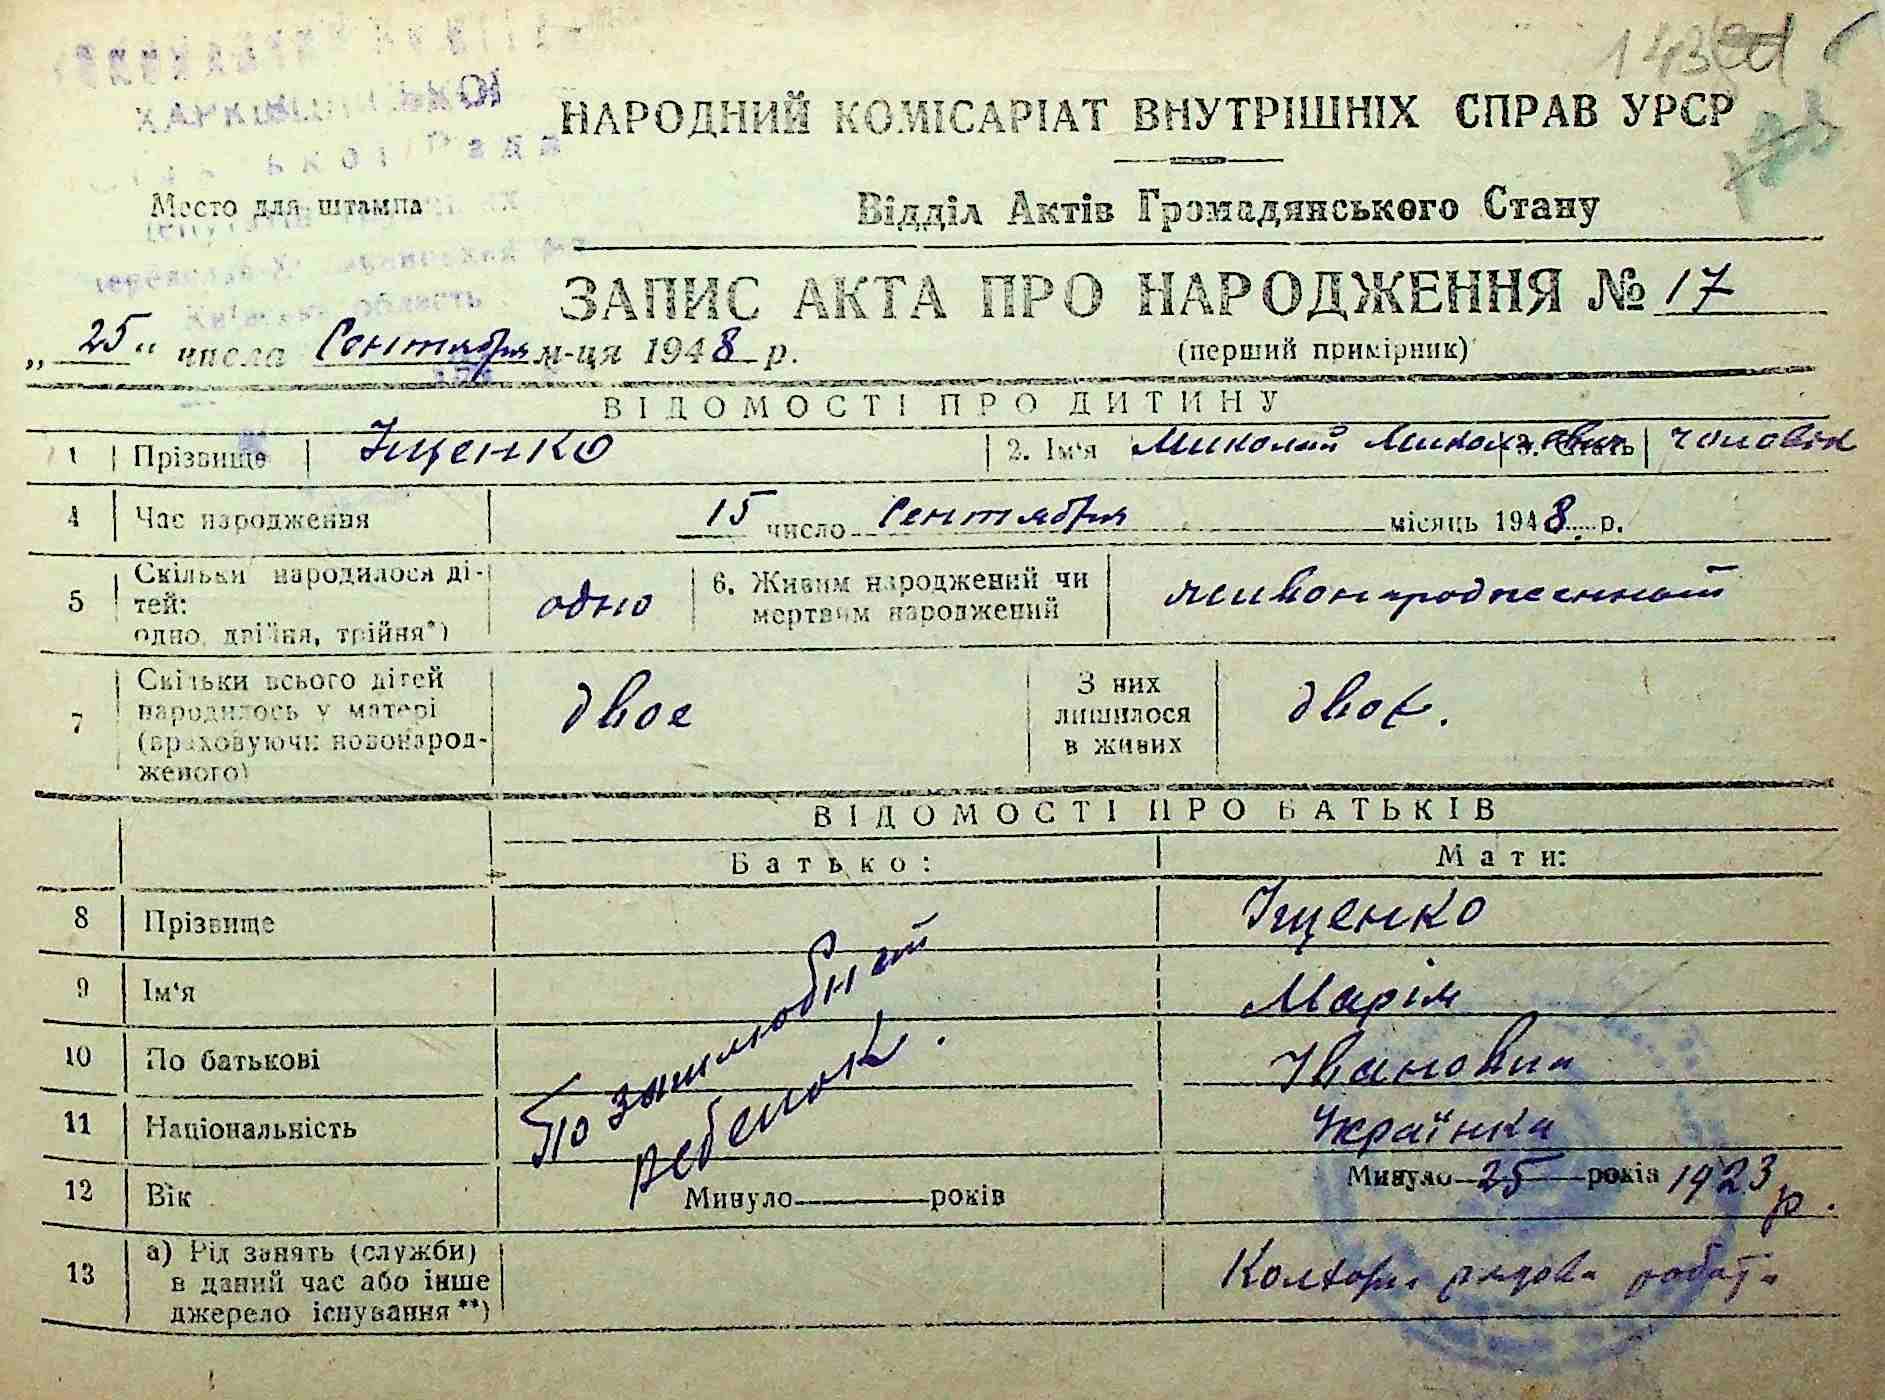 НАРОДНИЙ КОМІСАРІАТ ВНУТРІШНІХ СПРАВ УРСР
Место для штампа
Відділ Актів Громадянського Стану
ЗАПИС АКТА ПРО НАРОДЖЕННЯ № 17
„25“ числа Сентября м-ця 1948 р.
(перший примірник)
ВІДОМОСТІ ПРО ДИТИНУ
1 Прізвище Іщенко 2. Ім'я Миколай Миколаевич 3. Стать чоловік
4 Час народження 15 число Сентября місяць 1948 р.
5 Скільки народилося ді-
тей:
одно, двійня, трійня*) одно 6. Живим народжений чи
мертвим народжений живонародженный
7 Скільки всього дітей
народилось у матері
(враховуючи новонарод-
женого) двое З них
лишилося
в живих двое.
ВІДОМОСТІ ПРО БАТЬКІВ
Батько: Мати:
8 Прізвище Іщенко
9 Ім'я Марія
10 По батькові Івановна
11 Національність Українка
ребенок.
12 Вік Минуло років Минуло 25 років 1923 р.
13 а) Рід занять (служби)
в даний час або інше
джерело існування**) рядова робота